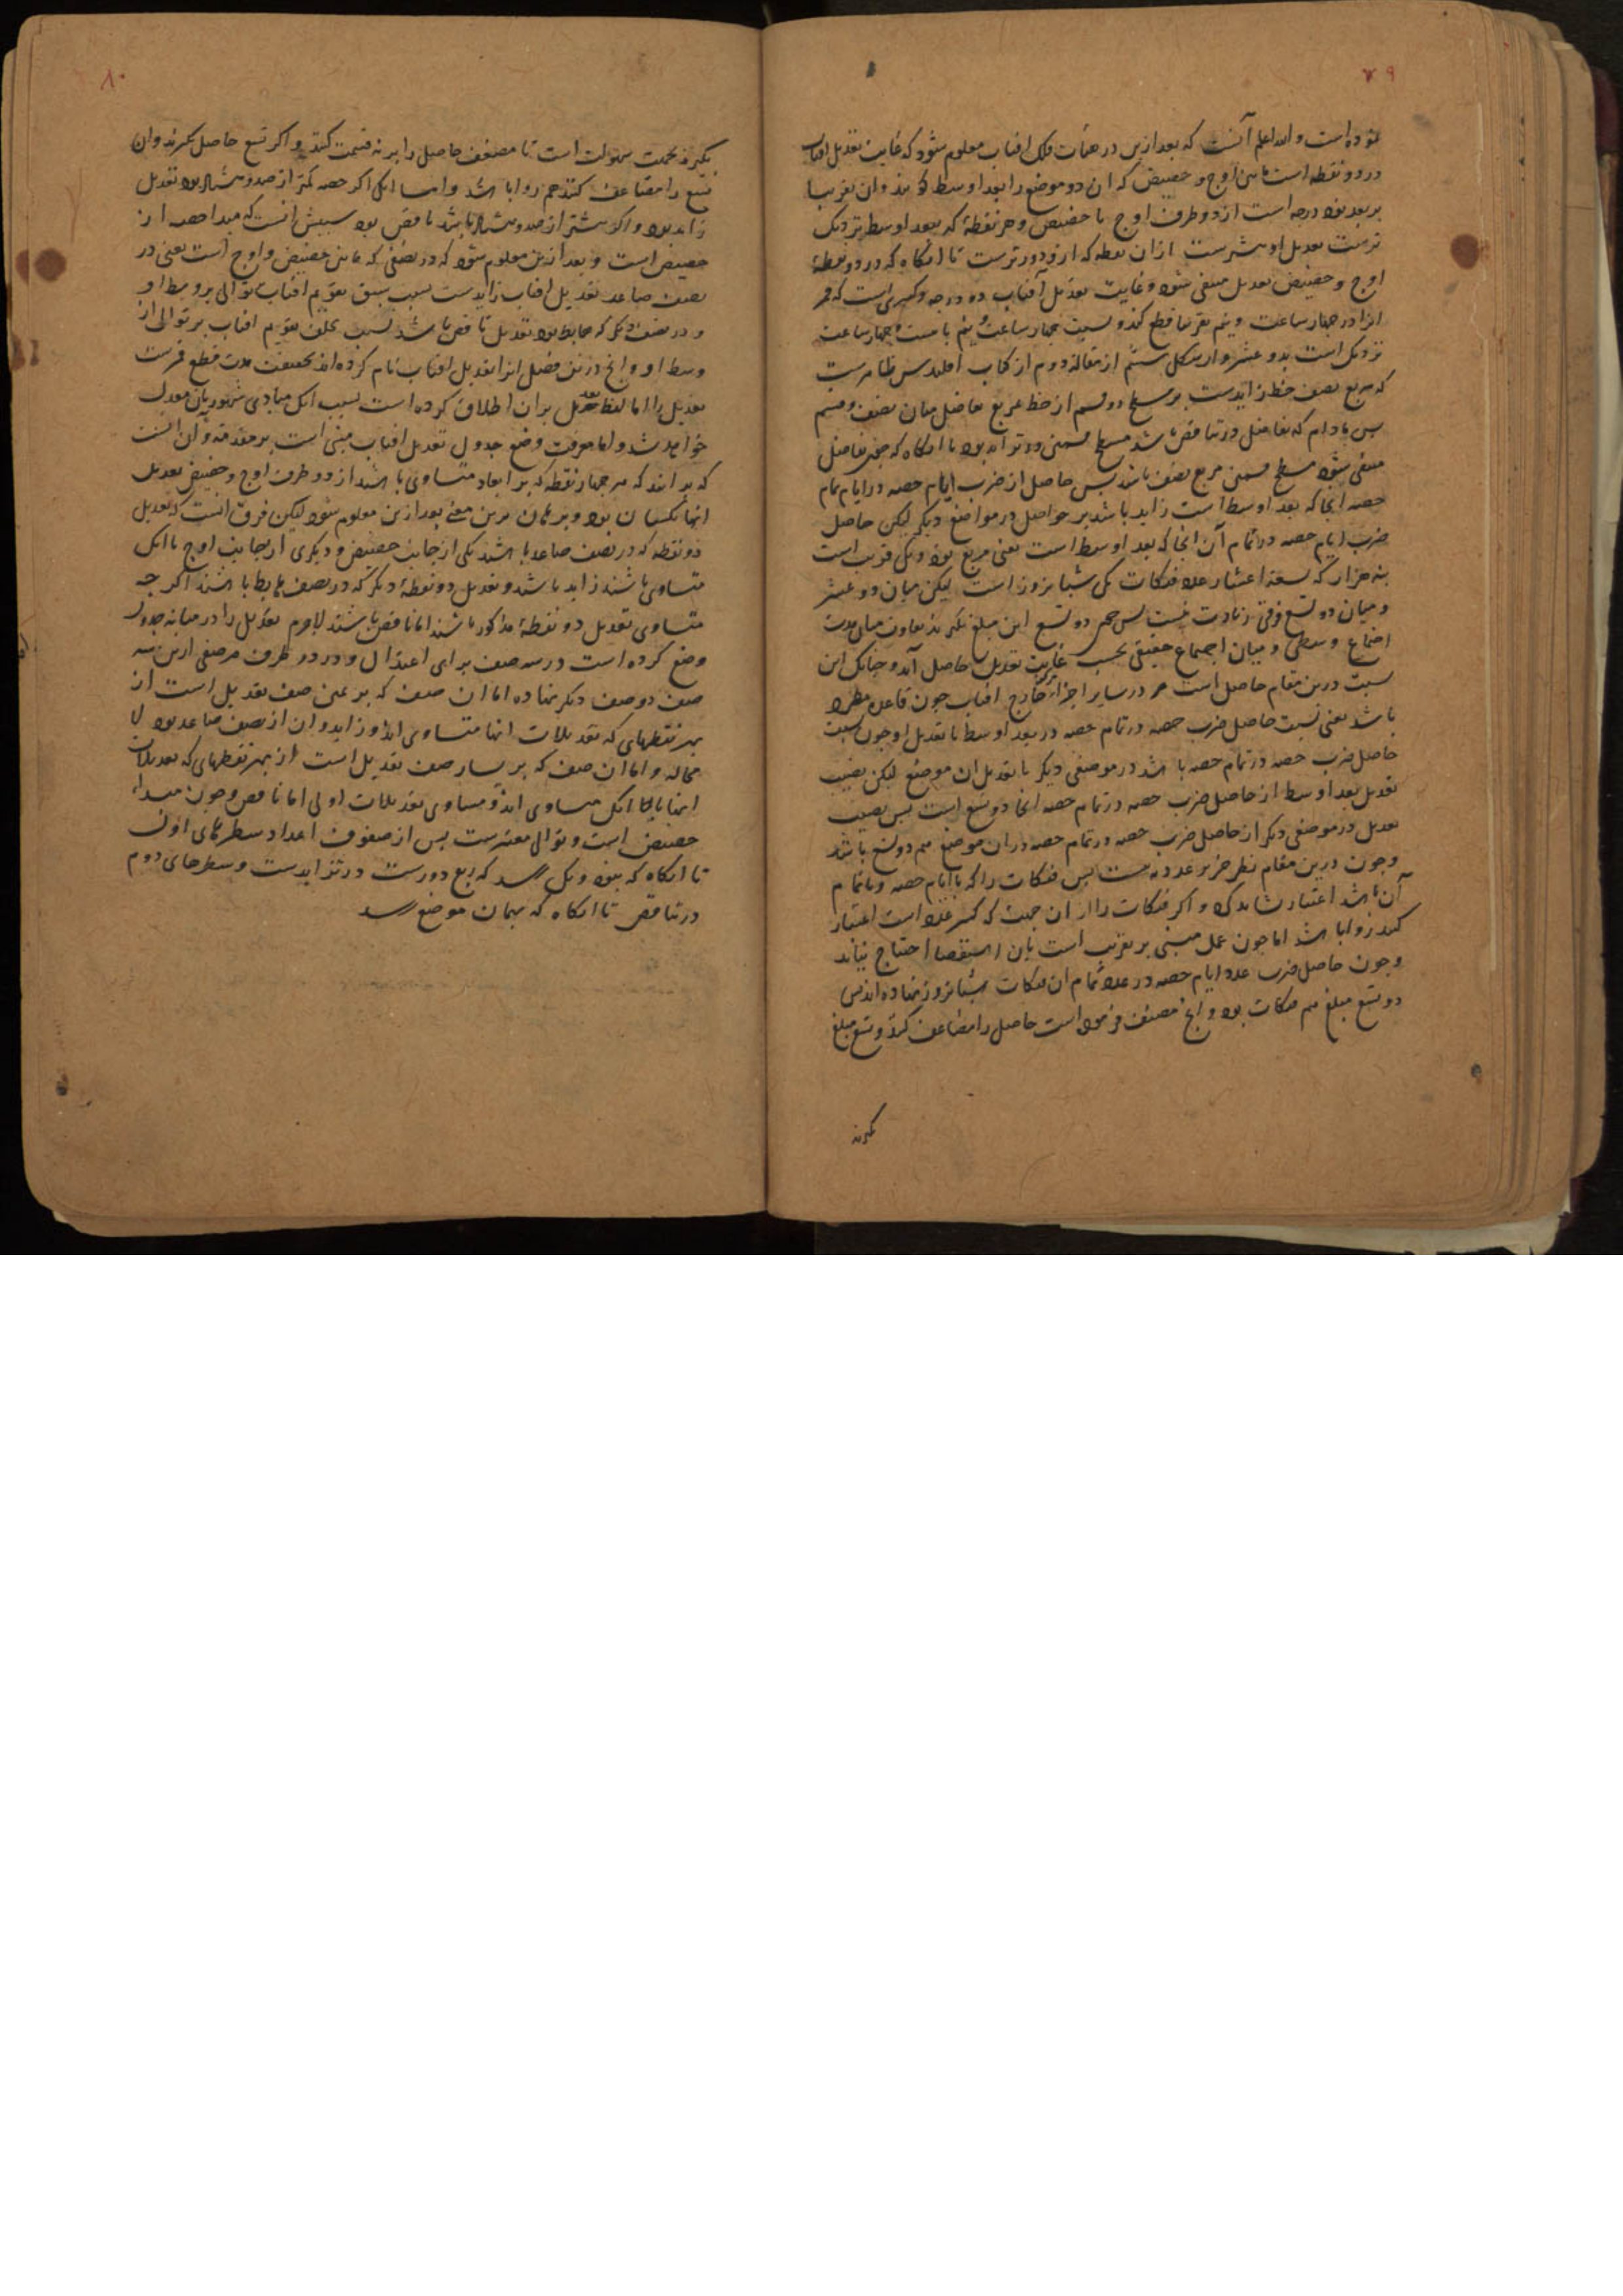 ۷۹
نموده است و الله اعلم آنست که بعد ازین در هیأت فلک افتاب معلوم شود که غایت تعدیل افتاب
در دو نقطه است مابین اوج و حضیض که ان دو موضع را بعد اوسط خوانند وان تقریبا
بر بعد نود درجه است از دو طرف اوج یا حضیض و هر نقطهٔ که ببعد اوسط نزدیک
ترست تعدیل او بیشترست ازان نقطه که ازو دورترست تا انکاه که در دو نقطهٔ
اوج و حضیض تعدیل منتفی شود و غایت تعدیل آفتاب دو درجه و کسری است که قمر
انرا در چهار ساعت و نیم تقریبا قطع کند و نسبت چهار ساعت و نیم با بیست و چهار ساعت
نزدیک است بدو عشر و از شکل ششم از مقالهٔ دوم از کتاب اقلیدس ظاهرست
که مربع نصف خط زایدست بر مسطح دو قسم از خط بمربع تفاضل میان نصف و قسم
پس مادام که تفاضل در تناقص باشد مسطح قسمین در تزاید بود تا انکاه که چون تفاضل
منتفی شود مسطح قسمین مربع نصف باشد پس حاصل از ضرب ایام حصه در ایام تمام
حصه انجا که بعد اوسط است زاید باشد بر حواصل در مواضع دیکر لیکن حاصل
ضرب ایام حصه در تمام آن انجا که بعد اوسط است یعنی مربع نود و یک قریب است
بنه هزار که تسعهٔ اعشار عدد فنکات یک شبانروز است لیکن میان دو عشر
و میان دو تسع فرقی زیادت نیست پس چون دو تسع این مبلغ بگیرند تفاوت میان مدت
اجتماع وسطی و میان اجتماع حقیقی بحسب غایت تعدیل حاصل آید و چنانک این
نسبت درین مقام حاصل است در سایر اجزاء خارج افتاب چون قاعده مطرد
باشد یعنی نسبت حاصل ضرب حصه در تمام حصه در بعد اوسط با تعدیل او چون نسبت
حاصل ضرب حصه در تمام حصه باشد در موضعی دیکر با تعدیل ان موضع لیکن نصیب
تعدیل بعد اوسط از حاصل ضرب حصه در تمام حصه انجا دو تسع است پس نصیب
تعدیل در موضعی دیکر از حاصل ضرب حصه در تمام حصه دران موضع هم دو تسع باشد
و چون درین مقام نظر جز بر عدد نیست پس فنکات را که با ایام حصه و با تمام
آن باشد اعتبار نشاید کرد و اکر فنکات را از ان جهت که کسر عدد است اعتبار
کنند روا باشد اما چون عمل مبنی بر تقریب است بان استقصا احتیاج نیاید
و چون حاصل ضرب عدد ایام حصه در عدد تمام ان فنکات شبانروز نهاده اند پس
دو تسع مبلغ هم فنکات بود و انچ مصنف فرموده است حاصل را مضاعف کنند و تسع مبلغ
بکیرند
۸۰
بکیرند بجهت سهولت است تا مضعف حاصل را بر نه قسمت کنند و اکر تسع حاصل بکیرند وان
تسع را مضاعف کنند هم روا باشد و اما انک اکر حصه کمتر از صد و هشتاد بود تعدیل
زاید بود و اکر بیشتر از صد و هشتاد باشد ناقص بود سببش انست که مبدا حصه از
حضیض است و بعد ازین معلوم شود که در نصفی که مابین حضیض و اوج است یعنی در
نصف صاعد تعدیل افتاب زایدست بسبب سبق تقویم افتاب بتوالی بر وسط او
و در نصف دیکر که هابط بود تعدیل ناقص باشد بسبب تخلف تقویم افتاب بر توالی از
وسط او و انچ درین فصل انرا تعدیل افتاب نام کرده اند بحقیقت مدت قطع قمرست
تعدیل را اما لفظ تعدیل بران اطلاق کرده است بسبب انک مبادی شهور بان معدل
خواهد شد و اما معرفت وضع جدول تعدیل افتاب مبنی است بر مقدمه و ان انست
که بدانند که هر چهار نقطه که بر ابعاد متساوی باشند از دو طرف اوج و حضیض تعدیل
انها یکسان بود و برهان برین معنی بعد ازین معلوم شود لیکن فرق انست که تعدیل
دو نقطه که در نصف صاعد باشند یکی از جانب حضیض و دیکری از جانب اوج با انک
متساوی باشند زاید باشد و تعدیل دو نقطهٔ دیکر که در نصف هابط باشند اکر چه
متساوی تعدیل دو نقطهٔ مذکور باشند اما ناقص باشند لاجرم تعدیل را در میانه جدول
وضع کرده است در سه صف برای اعتدال و در دو طرف هر صفی ازین سه
صف دو صف دیکر نهاده اما ان صف که بر یمین صف تعدیل است از
بهر نقطهای که تعدیلات انها متساوی اند و زاید و ان از نصف صاعد بود لا
محاله و اما ان صف که بر یسار صف تعدیل است از بهر نقطهای که تعدیلات
انها با انک متساوی اند و مساوی تعدیلات اولی اما ناقص و چون مبداء
حضیض است و توالی معتبرست پس از صفوف اعداد سطرهای اول
تا انکاه که بنود و یک رسد که ربع دورست در تزایدست و سطرهای دوم
در تناقص تا انکاه که بهمان موضع رسد